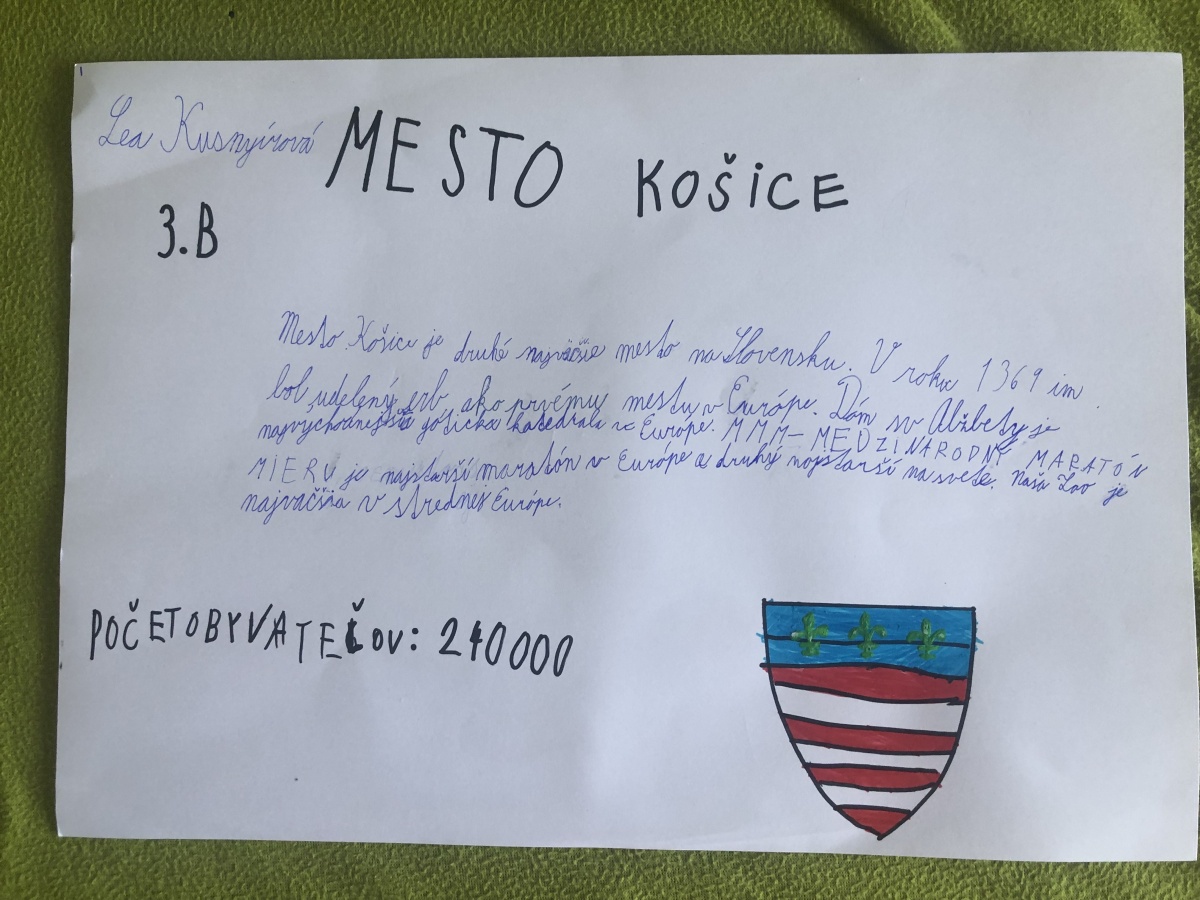 Lea Kusnyírová MESTO KOŠICE
3.B
Mesto Košice je druhé najväčšie mesto na Slovensku. V roku 1369 im
bol udelený erb ako prvému mestu v Európe. Dóm sv Alžbety je
najvýchodnejšia gótická katedrála v Európe. MMM-MEDZINÁRODNÝ MARATÓN
MIERU je najstarší maratón v Európe a druhý najstarší na svete. Naša Zoo je
najväčšia v strednej Európe.
POČET OBYVATEĽOV: 240000